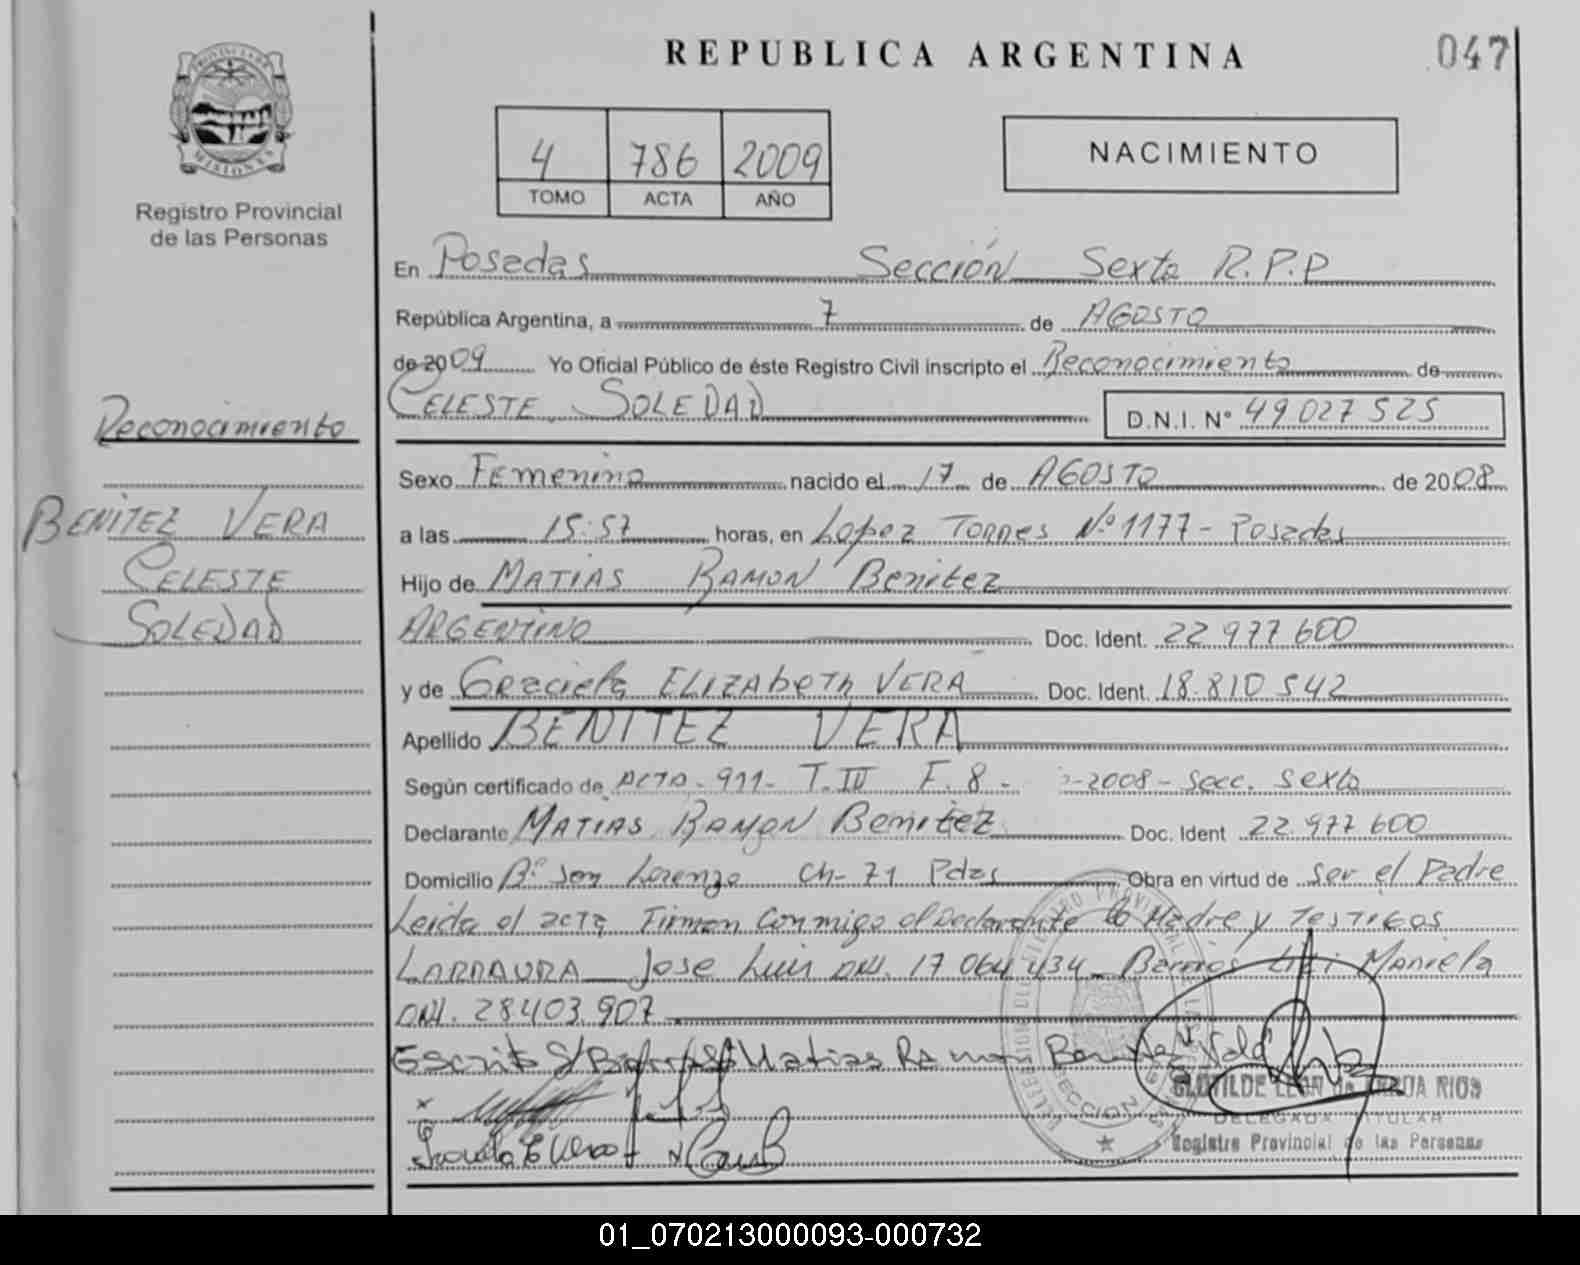 REPUBLICA ARGENTINA
047
PROVINCIA DE
MISIONES
Registro Provincial
de las Personas
4 786 2009
TOMO ACTA AÑO
NACIMIENTO
En Posadas Sección Sexta R.P.P
República Argentina, a 7 de AGOSTO
de 2009 Yo Oficial Público de éste Registro Civil inscripto el Reconocimiento de
CELESTE SOLEDAD D.N.I. N° 49.027.525
Reconocimiento
BENITEZ VERA
CELESTE
SOLEDAD
Sexo Femenino nacido el 17 de AGOSTO de 2008
a las 15:57 horas, en Lopez Torres N° 1177 - Posadas
Hijo de MATIAS RAMON Benitez
ARGENTINO Doc. Ident. 22.977.600
y de Graciela ELIZAbeTh VERA Doc. Ident. 18.810.542
Apellido BENITEZ VERA
Según certificado de ACTA - 911 - T. IV F. 8 - -2008 - Secc. Sexta
Declarante MATIAS RAMON Benitez Doc. Ident 22.977.600
Domicilio B° San Lorenzo Ch - 71 Pdas Obra en virtud de Ser el Padre
Leida el acta Firman Conmigo el Declarante la Madre y Testigos
LARRAURA Jose Luis DNI. 17.064.434 - Berrios Liti Mariela
DNI. 28.403.907
Escrito S/ Matias Ramon Benitez Vale
CLOTILDE LEON de RIOS
DELEGADA TITULAR
Registro Provincial de las Personas
01_070213000093-000732